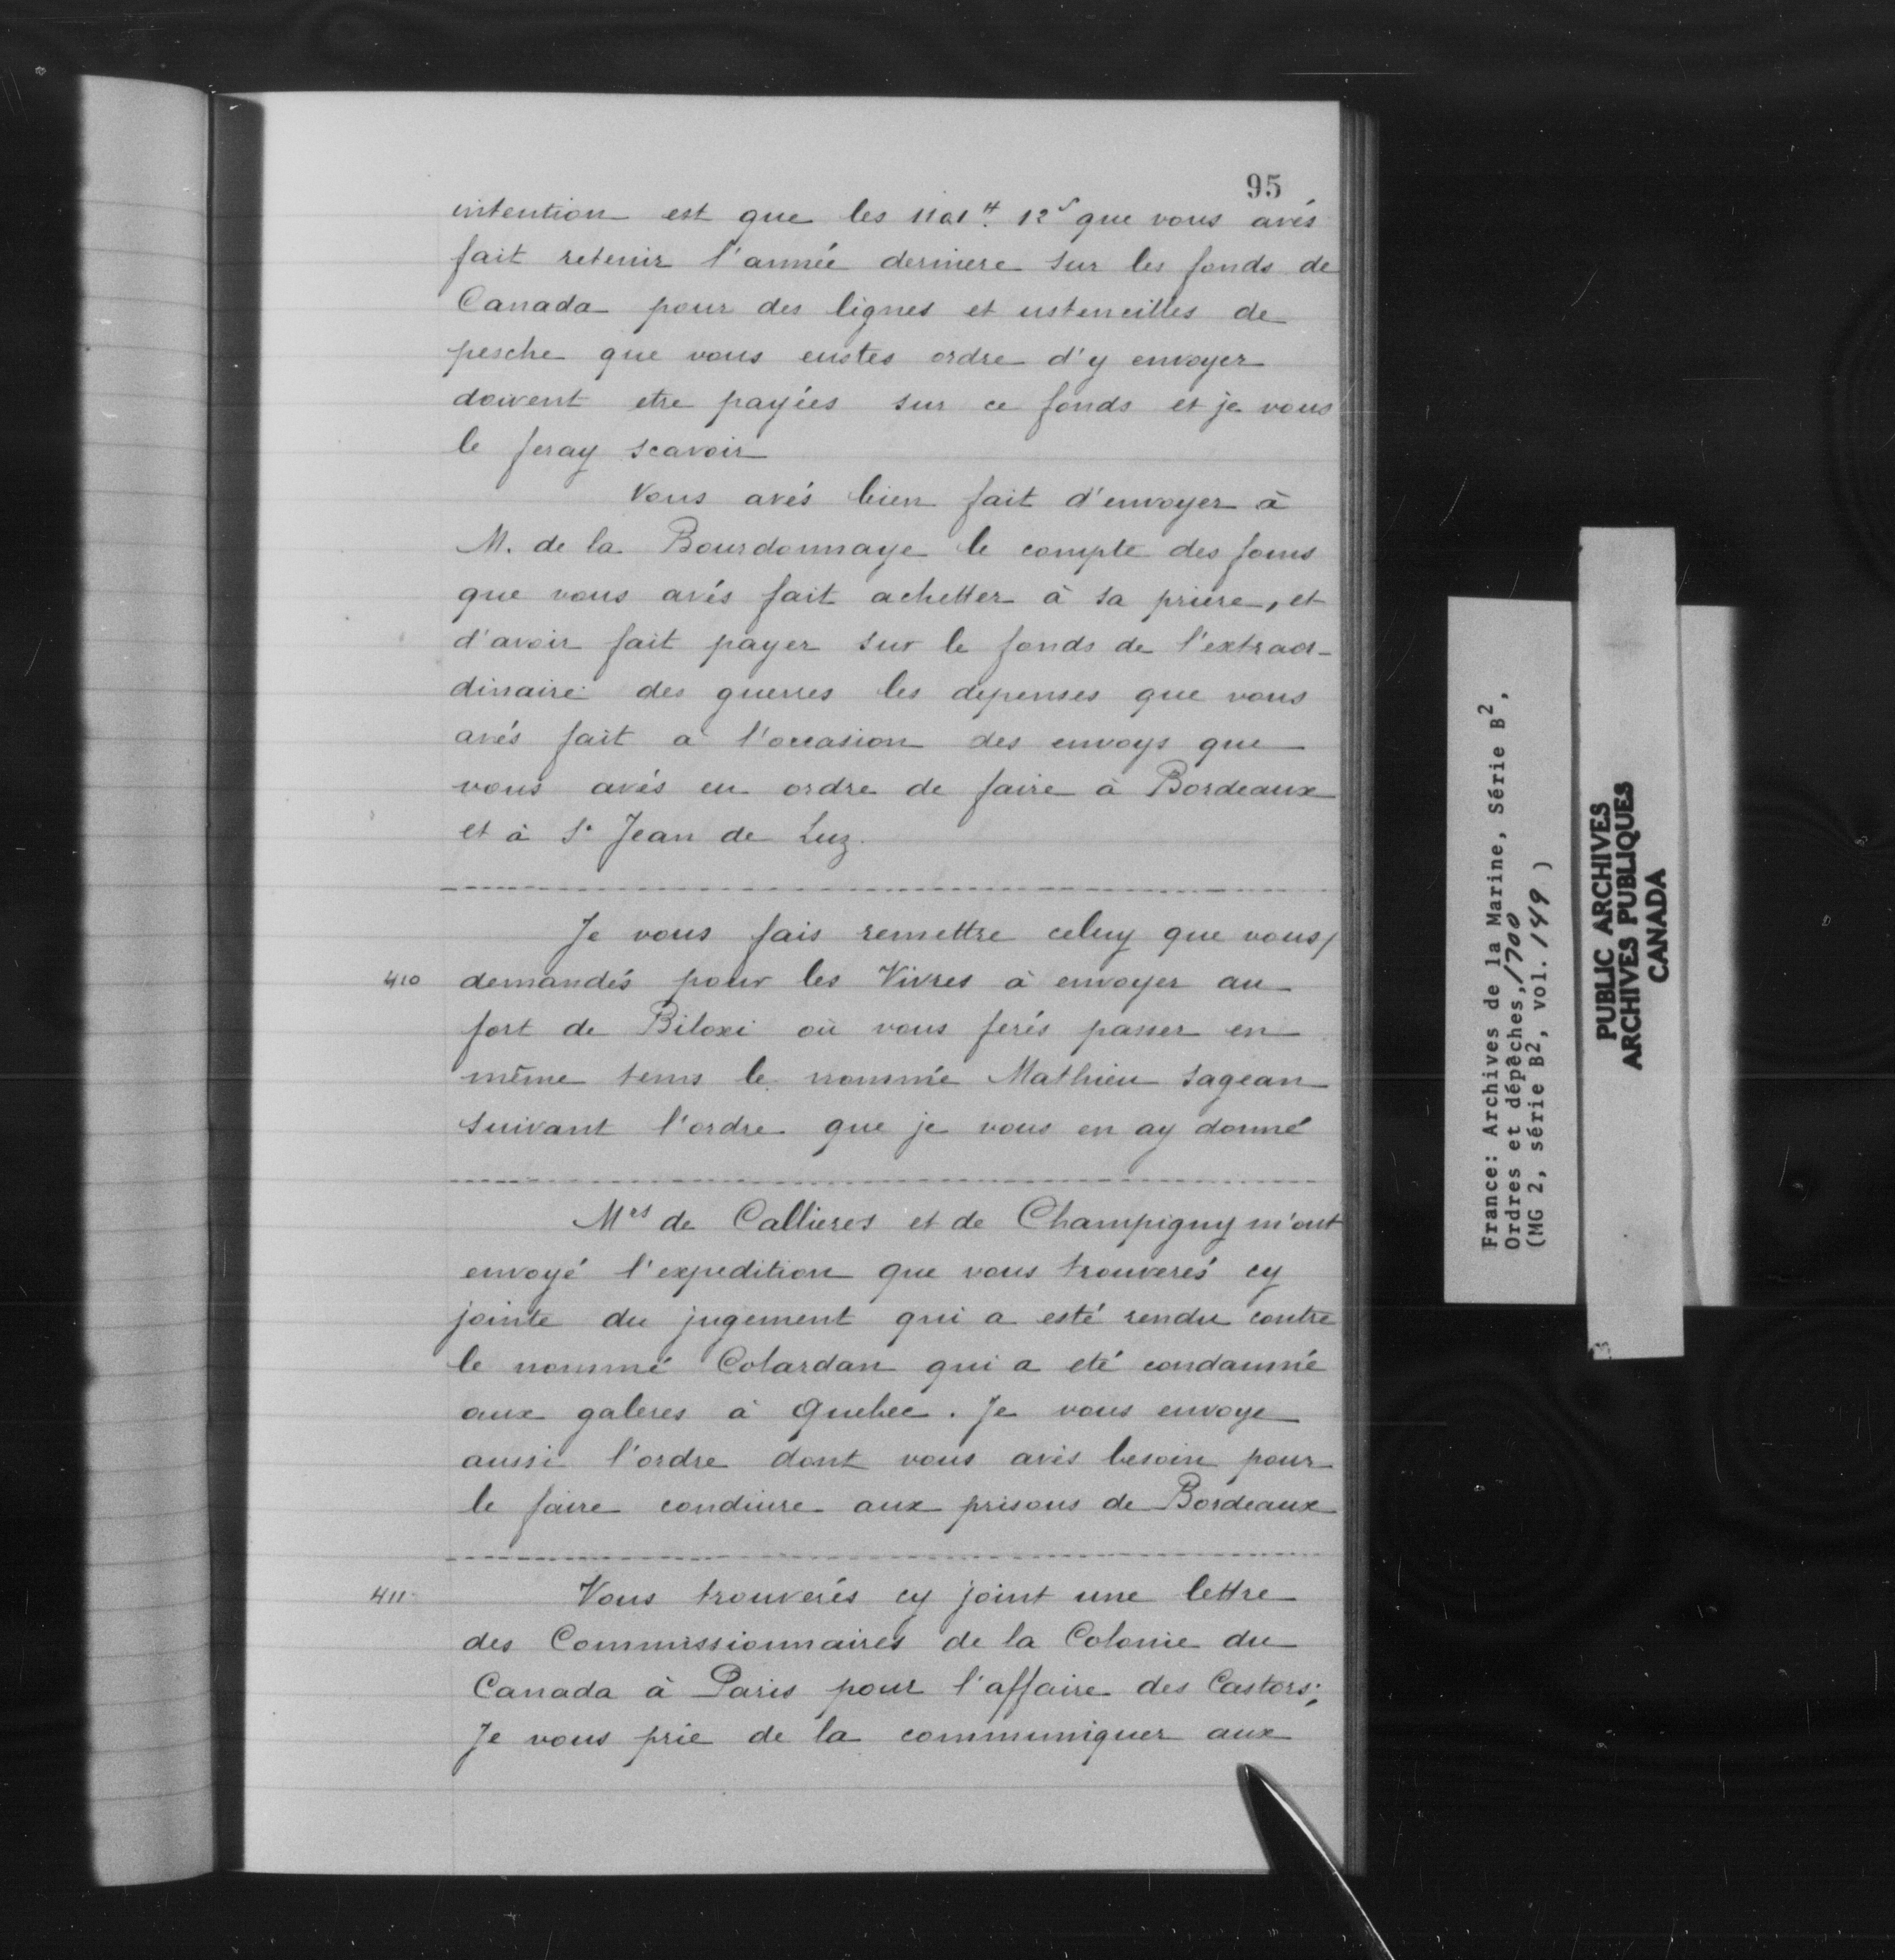 95
intention est que les 1101ᴴ. 12ˢ que vous avés
fait retenir l'année derniere sur les fonds de
Canada pour des lignes et usteneilles de
pesche que vous eustes ordre d'y envoyer
doivent etre payées sur ce fonds et je vous
le feray scavoir
Vous avés bien fait d'envoyer à
M. de la Bourdonnaye le compte des foins
que vous avés fait achetter à sa priere, et
d'avoir fait payer sur le fonds de l'extraor-
dinaire des guerres les depenses que vous
avés fait a l'occasion des envoys que
vous avés eu ordre de faire à Bordeaux
et à Sᵗ Jean de Luz.
Je vous fais remettre celuy que vous/
410 demandés pour les Vivres à envoyer au
fort de Biloxi où vous ferés passer en
même tems le nommé Mathieu Sagean
suivant l'ordre que je vous en ay donné
Mʳˢ de Callieres et de Champigny m'ont
envoyé l'expedition que vous trouverés cy
jointe du jugement qui a esté rendu contre
le nommé Colardan qui a eté condamné
aux galeres à Quebec. Je vous envoye
aussi l'ordre dont vous avés besoin pour
le faire conduire aux prisons de Bordeaux
411 Vous trouverés cy joint une lettre
des Commissionnaires de la Colonie du
Canada à Paris pour l'affaire des Castors;
Je vous prie de la communiquer aux
France: Archives de la Marine, Série B²,
Ordres et dépêches, 1700
(MG 2, série B², vol. 149 )
PUBLIC ARCHIVES
ARCHIVES PUBLIQUES
CANADA